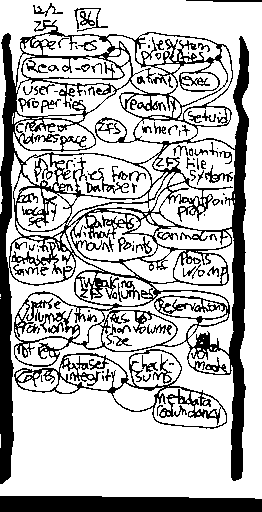 12/2
ZFS
properties
Filesystem
properties
Read-only
atime
exec
user-defined
properties
readonly
setuid
Create or
namespace
ZFS
inherit
inherit
properties from
parent dataset
mounting
ZFS file
systems
can be
locally
set
mountpoint
prop
Datasets
without
mount points
canmount
multiple
datasets w/
same mp
Pools
w/o mp
Tweaking
ZFS volumes
Reservation
sparse
volumes/thin
provisioning
than volume
size
vol
mode
copies
Dataset
integrity
check-
sums
metadata
redundancy